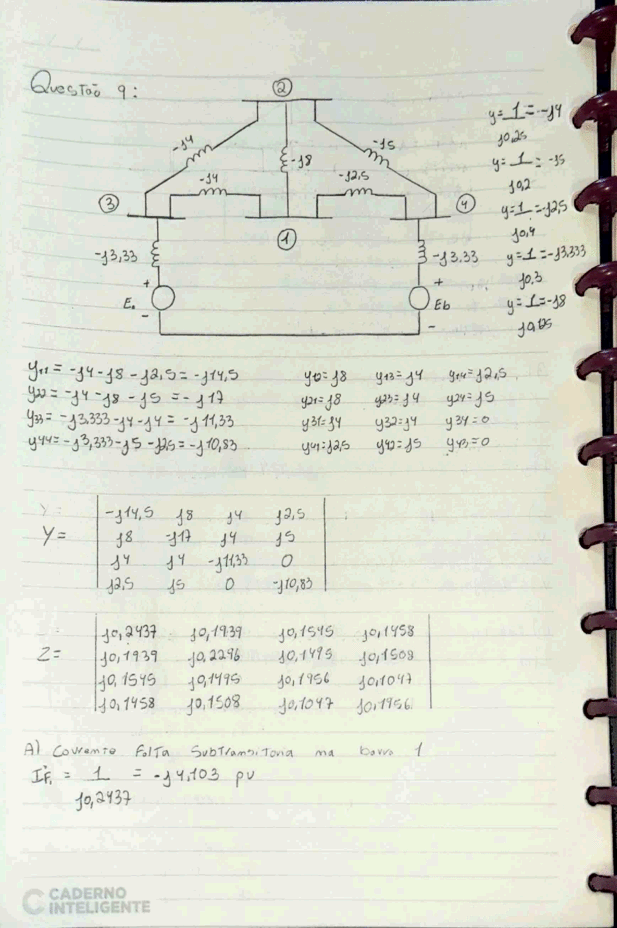 Questão 9:
②
-j4
-j8
-j5
③
-j4
-j2,5
④
①
-j3,33
-j3,33
+
+
Ea
Eb
-
-
y=1/j0,25=-j4
y=1/j0,2=-j5
y=1/j0,4=-j2,5
y=1/j0,3=-j3,333
y=1/j0,125=-j8
y11 = -j4-j8-j2,5 = -j14,5 y12=j8 y13=j4 y14=j2,5
y22 = -j4-j8-j5 = -j17 y21=j8 y23=j4 y24=j5
y33 = -j3,333-j4-j4 = -j11,33 y31=j4 y32=j4 y34=0
y44=-j3,333-j5-j2,5=-j10,83 y41=j2,5 y42=j5 y43=0
Y=
-j14,5 j8 j4 j2,5
j8 -j17 j4 j5
j4 j4 -j11,33 0
j2,5 j5 0 -j10,83
Z=
j0,2437 j0,1939 j0,1545 j0,1458
j0,1939 j0,2296 j0,1495 j0,1508
j0,1545 j0,1495 j0,1956 j0,1047
j0,1458 j0,1508 j0,1047 j0,1956
A) Corrente Falta Subtransitoria na barra 1
IF1 = 1/j0,2437 = -j4,103 pu
CADERNO
INTELIGENTE